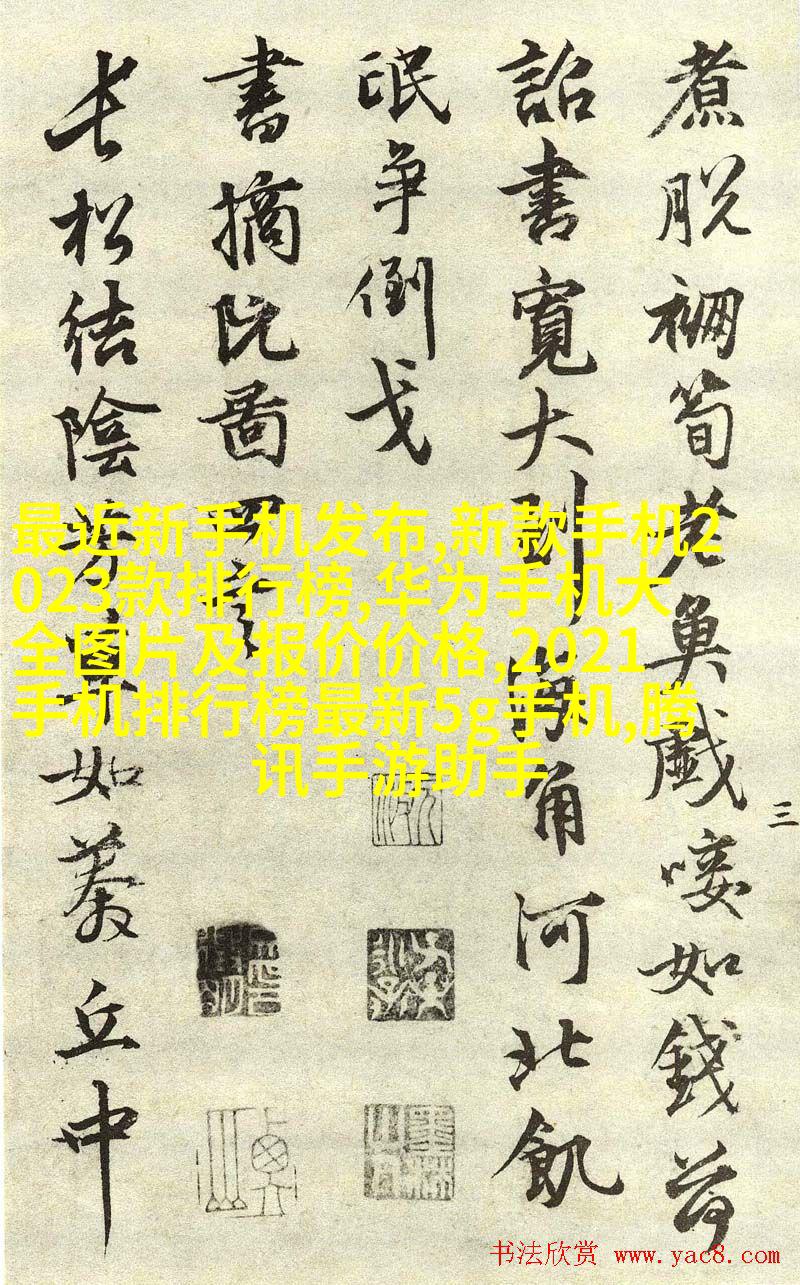 煮脱筍老魚戲唼如錢荷
詔書寬大到角河北飢
氓争倒戈
書摘阮圖四
長松結陰如綦丘中
三
最近新手机发布,新款手机2
023款排行榜,华为手机大
全图片及报价价格,2021
手机排行榜最新5g手机,腾
讯手游助手
书法欣赏 www.yac8.com